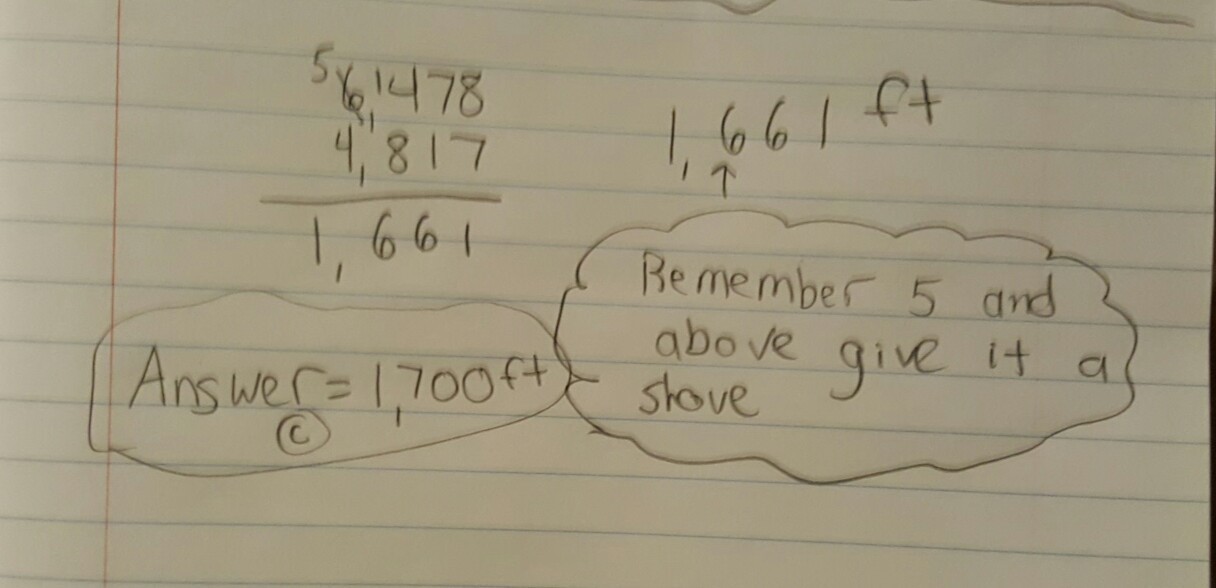 5 6,1478
4,817
1,661
1,661 ft
↑
Remember 5 and
above give it a
shove
Answer = 1,700 ft
©